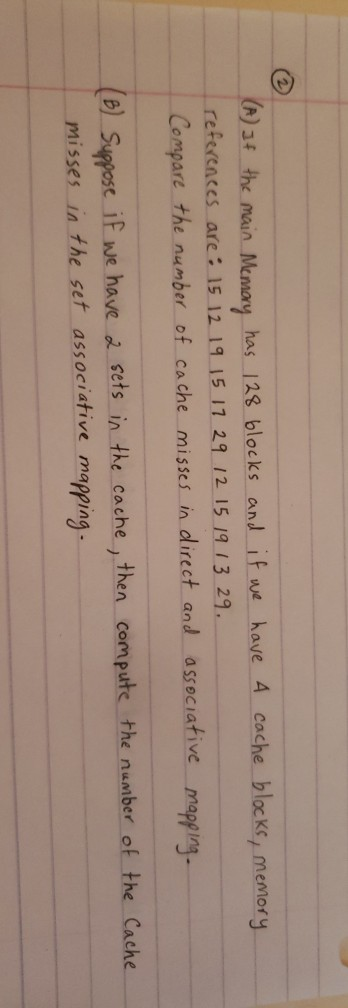 ②
(A) If the main Memory has 128 blocks and if we have 4 cache blocks, memory
references are: 15 12 19 15 17 29 12 15 19 13 29.
Compare the number of cache misses in direct and associative mapping.
(B) Suppose if we have 2 sets in the cache, then compute the number of the Cache
misses in the set associative mapping.